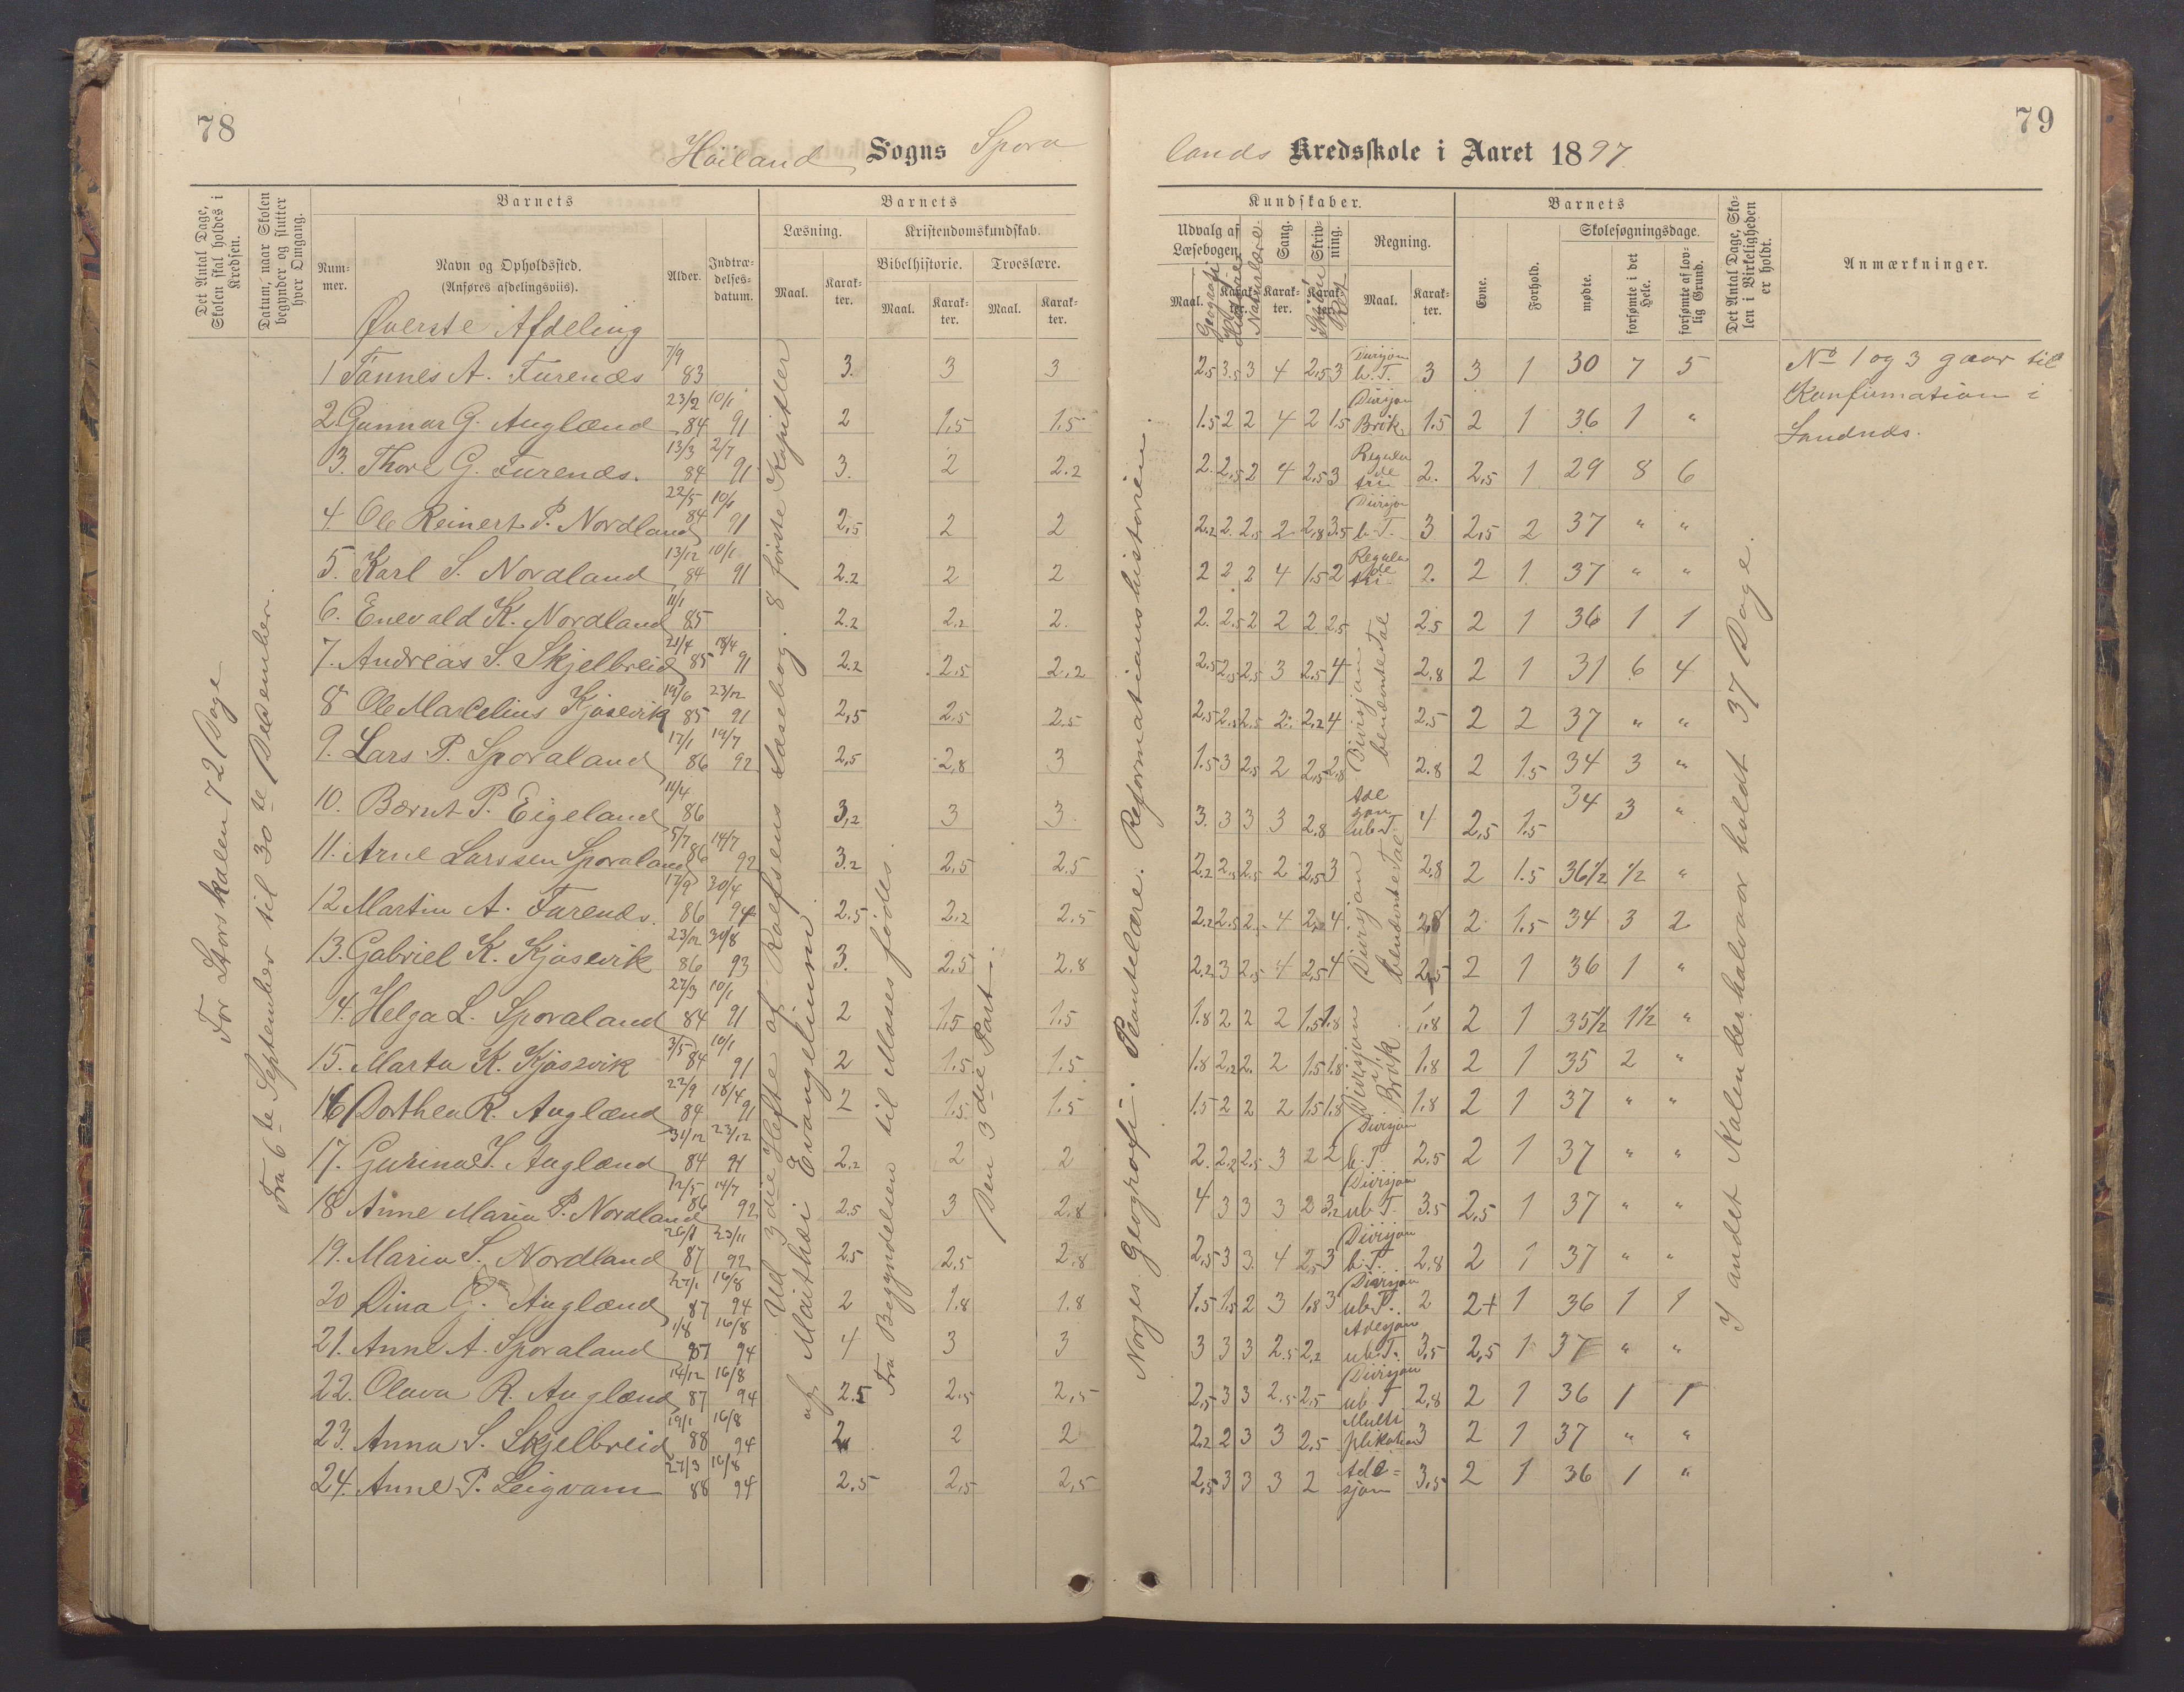 78
Höiland Sogns Spora
Det Antal Dage, Skolen skal holdes i Kredsen.
Datum, naar Skolen begynder og slutter hver Omgang.
Barnets
Barnets
Num-mer.
Navn og Opholdssted.
(Anføres afdelingsviis).
Alder.
Indtræ-delses-datum.
Læsning.
Kristendomskundskab.
Maal.
Karak-ter.
Bibelhistorie.
Troeslære.
Maal.
Karak-ter.
Maal.
Karak-ter.
For Storskolen 72 Dage
Fra 6te September til 30te Desember.
Ud 3die Hefte af Rolfsens Læsebog. 8 første Kapitler
af Matthæi Evangelium.
Fra Begyndelsen til Moses fødes.
Den 3die Part
Øverste Afdeling
1 Tønnes A. Furenæs 7/9 83 3. 3 3
2 Gunnar G. Auglænd 23/2 84 10/1 91 2 1,5 1.5
3. Thore G. Furenæs. 13/3 84 2/7 91 3. 2 2.2
4. Ole Reinert P. Nordland 22/5 84 10/1 91 2,5 2 2
5. Karl S. Nordland 13/12 84 10/1 91 2.2 2 2
6. Enevald K. Nordland 11/1 85 2.2 2.2 2.
7. Andreas S. Skjelbreid 21/4 85 18/4 91 2.2 2,5 2,2
8 Ole Marcelius Kjosevik 19/6 85 23/12 91 2,5 2.5 2.5
9. Lars P. Sporaland 17/1 86 19/7 92 2,5 2,8 3
10. Bernt P. Eigeland 11/4 86 3,2 3 3
11. Arne Larssen Sporaland 5/7 86 14/7 92 3.2 2,5 2.5
12 Martin A. Furenæs. 17/9 86 30/4 94 2.5 2.2 2.5
13. Gabriel K. Kjosevik 23/12 86 30/8 93 3. 2,5 2.8
14. Helga L. Sporaland 27/3 84 10/1 91 2 1,5 1.5
15. Marta K. Kjosevik 3/5 84 10/1 91 2 1.5 1.5
16 Dorthea R. Auglænd 22/9 84 18/4 91 2 1.5 1.5
17. Gurina T. Auglænd 31/12 84 23/12 91 2,2 2 2
18 Anne Maria P. Nordland 12/5 86 14/7 92 2.5 3 2.8
19. Maria S. Nordland 26/1 87 23/11 92 2.5 2,5 2,8
20 Dina G. Auglænd 27/1 87 16/8 94 2 1.8 1.8
21. Anne A. Sporaland 1/8 87 16/8 94 4 3 3
22. Olava R. Auglænd 14/12 87 16/8 94 2.5 2,5 2,5
23. Anna S. Skjelbreid 19/1 88 16/8 94 2 2 2
24. Anne P. Leigvam 27/3 88 16/8 94 2,5 2,5 2,5
79
lands Kredsskole i Aaret 1897
Kundskaber.
Barnets
Udvalg af Læsebogen.
Sang.
Skriv-ning.
Regning.
Maal.
Geografi
Historie
Naturlære.
Karak-ter.
Karak-ter.
Karak-ter.
Maal.
Karak-ter.
Evne.
Forhold.
Skolesøgningsdage.
mødte.
forsømte i det Hele.
forsømte af lov-lig Grund.
Det Antal Dage, Sko-len i Virkeligheden er holdt.
Anmærkninger.
Norges Geografi. Plantelære. Reformationshistorien.
I andet Kalenderhalvaar holdt 37 Dage.
2.5 3.5 3 4 2,5 3 Divisjon b.T. 3 3 1 30 7 5
1.5 2 2 4 2 1.5 Divisjon Brøk 1.5 2 1 36 1 "
2. 2,5 2 4 2.5 3 Regula de tri 2. 2,5 1 29 8 6
2.2 2. 2,5 2 2,8 3.5 Divisjon b.T. 3 2,5 2 37 " "
2 2 2 4 1.5 2 Regula de tri 2. 2 1 37 " "
2. 2.5 2 2 2 2,5 2.5 2 1 36 1 1
2.5 2,5 2,5 3 2.5 4 2,8 2 1 31 6 4
2,5 2,5 2,5 2. 2,2 4 2.5 2 2 37 " "
1.5 3 2,5 2 2,5 2,8 2.8 2 1.5 34 3 "
Divisjon benævnte Tal
3. 3 3 3 2.8 Adesjon ub.T 4 2,5 1.5 34 3 "
2.2 2,5 2,5 2 2,5 3 2.8 2 1.5 36½ ½ "
2.2 2.5 2,5 4 2,2 4 2,8 2 1.5 34 3 2
2.2 3 2,5 4 2,5 4 2,5 2 1 36 1 "
Divisjon benævnte Tal
1.8 2 2 2 1.5 1.8 1.8 2 1 35½ 1½ "
1.8 2,2 2. 2 1.5 1.8 1.8 2 1 35 2 "
1.5 2 2 2 1.5 1.8 1.8 2 1 37 " "
Divisjon i Brøk
2. 2,2 2,5 3 2 2 Divisjon b.T. 2.5 2 1 37 " "
4 3 3 3 3 3,2 Divisjon ub.T. 3.5 2,5 1 37 " "
2,5 3 3. 4 2,5 3 Divisjon b.T. 2,8 2 1 37 " "
1.5 1.5 2 3 1.8 3 Divisjon ub.T. 2 2+ 1 36 1 1
3 3 3 2.5 2,2 Adesjon ub.T. 3,5 2,5 1 37 " "
2,5 3 3 2.5 2,5 Divisjon ub.T 2,8 2 1 36 1 1
2,2 2 3 3 2,5 Multiplikation 3 2 1 37 " "
2,5 3 3 3 2 Ade=sjon 3,5 2 1 36 1 "
No 1 og 3 gaar til
Konfirmation i
Sandnæs.